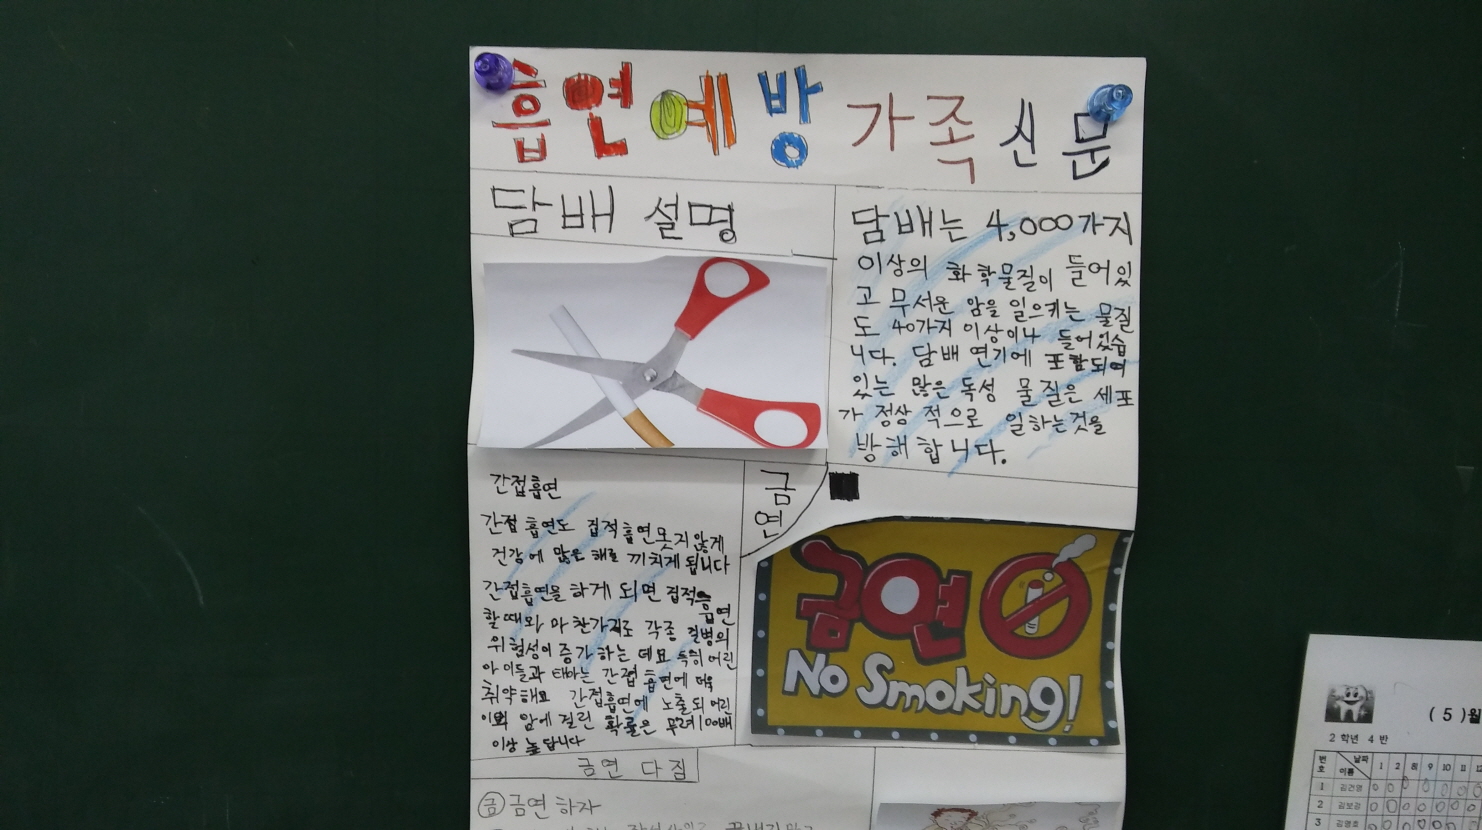 흡연예방 가족신문
담배 설명
담배는 4,000가지
이상의 화학물질이 들어있
고 무서운 암을 일으키는 물질
도 40가지 이상이나 들어있습
니다. 담배 연기에 포함되어
있는 많은 독성 물질은 세포
가 정상적으로 일하는것을
방해합니다.
간접흡연
간접 흡연도 직접흡연못지않게
건강에 많은 해를 끼치게 됩니다
간접흡연을 하게 되면 직접흡연
할때와 마찬가지로 각종 질병의
위험성이 증가하는데요 특히 어린
아이들과 태아는 간접 흡연에 더욱
취약해요 간접흡연에 노출되 어린
암에 걸린 확률은 무려 100배
이상 높답니다
금
연
금연
No Smoking!
금연 다짐
금 금연 하자
( 5 )월
2 학년 4 반
번호 이름 날짜 1 2 8 9 10 11 12
1
2
3